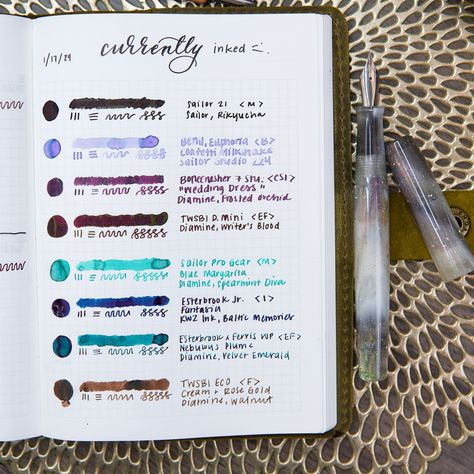 1/17/24
currently inked =
Sailor 21 <M>
Sailor, Rikyucha
Benu, Euphoria <B>
Confetti Milkshake
Sailor Studio 224
Bonecrusher 7 Stu. <CSI>
"Wedding Dress"
Diamine, Frosted Orchid
TWSBI D. Mini <EF>
Diamine, Writer's Blood
Sailor Pro Gear <M>
Blue Margarita
Diamine, Spearmint Diva
Esterbrook Jr. <1>
Fantasia
KWZ Ink, Baltic Memories
Esterbrook x Ferris WP <EF>
Nebulous Plume
Diamine, Velvet Emerald
TWSBI ECO <F>
Cream + Rose Gold
Diamine, Walnut